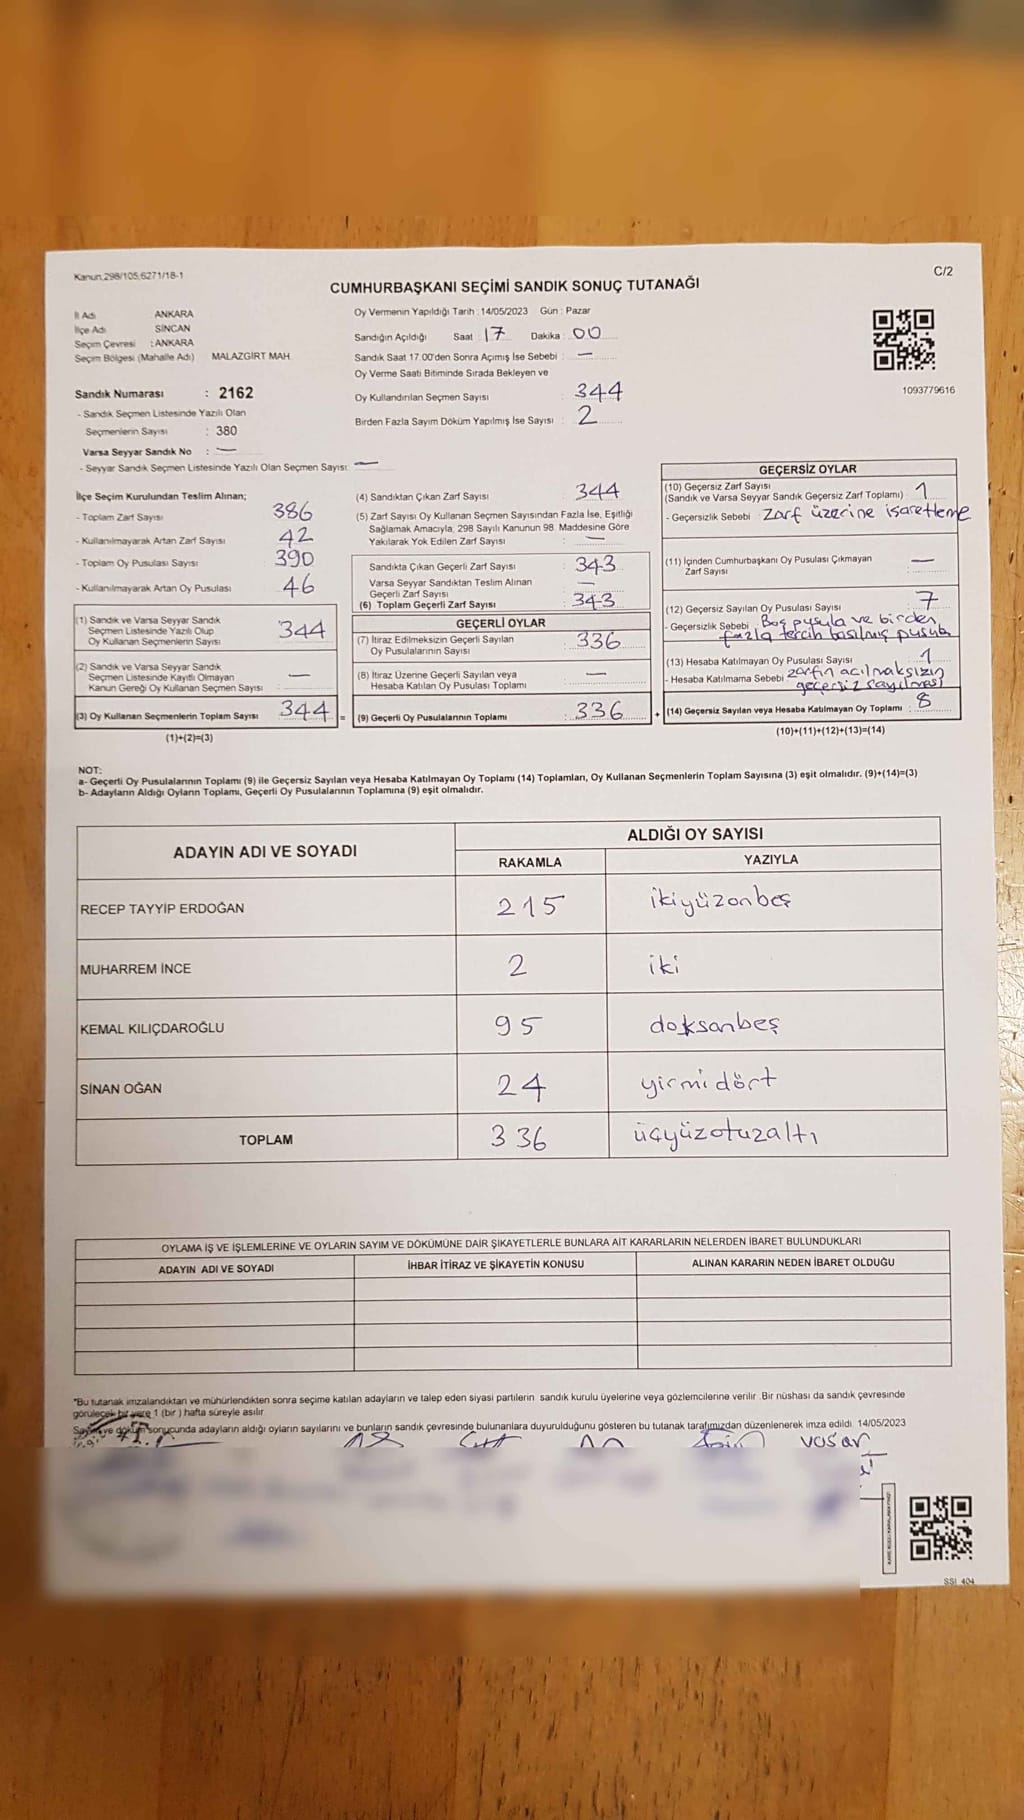 Kanun.298/105,6271/18-1
C/2
CUMHURBAŞKANI SEÇİMİ SANDIK SONUÇ TUTANAĞI
İl Adı ANKARA
İlçe Adı SİNCAN
Seçim Çevresi : ANKARA
Seçim Bölgesi (Mahalle Adı) MALAZGİRT MAH.
Sandık Numarası : 2162
- Sandık Seçmen Listesinde Yazılı Olan
Seçmenlerin Sayısı : 380
Varsa Seyyar Sandık No : —
- Seyyar Sandık Seçmen Listesinde Yazılı Olan Seçmen Sayısı: —
Oy Vermenin Yapıldığı Tarih : 14/05/2023 Gün : Pazar
Sandığın Açıldığı Saat : 17 Dakika : 00
Sandık Saat 17.00'den Sonra Açımış İse Sebebi : —
Oy Verme Saati Bitiminde Sırada Bekleyen ve
Oy Kullandırılan Seçmen Sayısı : 344
Birden Fazla Sayım Döküm Yapılmış İse Sayısı : 2
1093779616
İlçe Seçim Kurulundan Teslim Alınan;
- Toplam Zarf Sayısı 386
- Kullanılmayarak Artan Zarf Sayısı 42
- Toplam Oy Pusulası Sayısı 390
- Kullanılmayarak Artan Oy Pusulası 46
(1) Sandık ve Varsa Seyyar Sandık
Seçmen Listesinde Yazılı Olup
Oy Kullanan Seçmenlerin Sayısı 344
(2) Sandık ve Varsa Seyyar Sandık
Seçmen Listesinde Kayıtlı Olmayan
Kanun Gereği Oy Kullanan Seçmen Sayısı —
(3) Oy Kullanan Seçmenlerin Toplam Sayısı 344 =
(1)+(2)=(3)
(4) Sandıktan Çıkan Zarf Sayısı : 344
(5) Zarf Sayısı Oy Kullanan Seçmen Sayısından Fazla İse, Eşitliği
Sağlamak Amacıyla, 298 Sayılı Kanunun 98. Maddesine Göre
Yakılarak Yok Edilen Zarf Sayısı : —
Sandıkta Çıkan Geçerli Zarf Sayısı : 343
Varsa Seyyar Sandıktan Teslim Alınan
Geçerli Zarf Sayısı : —
(6) Toplam Geçerli Zarf Sayısı : 343
GEÇERLİ OYLAR
(7) İtiraz Edilmeksizin Geçerli Sayılan
Oy Pusulalarının Sayısı : 336
(8) İtiraz Üzerine Geçerli Sayılan veya
Hesaba Katılan Oy Pusulası Toplamı : —
(9) Geçerli Oy Pusulalarının Toplamı : 336 +
GEÇERSİZ OYLAR
(10) Geçersiz Zarf Sayısı
(Sandık ve Varsa Seyyar Sandık Geçersiz Zarf Toplamı) : 1
- Geçersizlik Sebebi : Zarf üzerine işaretleme
(11) İçinden Cumhurbaşkanı Oy Pusulası Çıkmayan
Zarf Sayısı : —
(12) Geçersiz Sayılan Oy Pusulası Sayısı : 7
- Geçersizlik Sebebi : Boş pusula ve birden
fazla tercih basılmış pusula
(13) Hesaba Katılmayan Oy Pusulası Sayısı : 1
- Hesaba Katılmama Sebebi : zarfın açılmaksızın
geçersiz sayılması
(14) Geçersiz Sayılan veya Hesaba Katılmayan Oy Toplamı : 8
(10)+(11)+(12)+(13)=(14)
NOT:
a- Geçerli Oy Pusulalarının Toplamı (9) ile Geçersiz Sayılan veya Hesaba Katılmayan Oy Toplamı (14) Toplamları, Oy Kullanan Seçmenlerin Toplam Sayısına (3) eşit olmalıdır. (9)+(14)=(3)
b- Adayların Aldığı Oyların Toplamı, Geçerli Oy Pusulalarının Toplamına (9) eşit olmalıdır.
ADAYIN ADI VE SOYADI ALDIĞI OY SAYISI
RAKAMLA YAZIYLA
RECEP TAYYİP ERDOĞAN 215 ikiyüzonbeş
MUHARREM İNCE 2 iki
KEMAL KILIÇDAROĞLU 95 doksanbeş
SİNAN OĞAN 24 yirmidört
TOPLAM 336 üçyüzotuzaltı
OYLAMA İŞ VE İŞLEMLERİNE VE OYLARIN SAYIM VE DÖKÜMÜNE DAİR ŞİKAYETLERLE BUNLARA AİT KARARLARIN NELERDEN İBARET BULUNDUKLARI
ADAYIN ADI VE SOYADI İHBAR İTİRAZ VE ŞİKAYETİN KONUSU ALINAN KARARIN NEDEN İBARET OLDUĞU
*Bu tutanak imzalandıktan ve mühürlendikten sonra seçime katılan adayların ve talep eden siyasi partilerin sandık kurulu üyelerine veya gözlemcilerine verilir. Bir nüshası da sandık çevresinde
görülecek bir yere 1 (bir) hafta süreyle asılır.
Sayım ve döküm sonucunda adayların aldığı oyların sayılarını ve bunların sandık çevresinde bulunanlara duyurulduğunu gösteren bu tutanak tarafımızdan düzenlenerek imza edildi. 14/05/2023
SSI_404